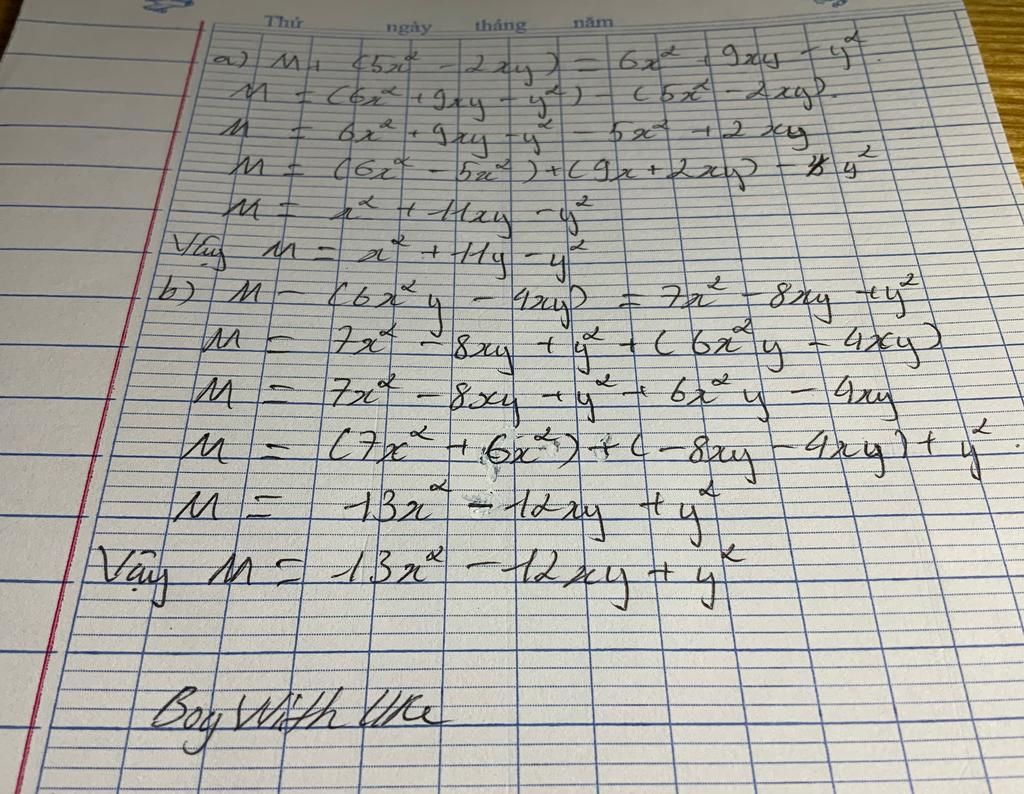 Thứ ngày tháng năm
a) M + (5x² - 2xy) = 6x² + 9xy - y²
M = (6x² + 9xy - y²) - (5x² - 2xy).
M = 6x² + 9xy - y² - 5x² + 2xy
M = (6x² - 5x²) + (9x + 2xy) - y²
M = x² + 11xy - y²
Vậy M = x² + 11y - y²
b) M - (6x²y - 4xy) = 7x² - 8xy + y²
M = 7x² - 8xy + y² + (6x²y - 4xy)
M = 7x² - 8xy + y² + 6x²y - 4xy
M = (7x² + 6x²) + (-8xy - 4xy) + y².
M = 13x² - 12xy + y²
Vậy M = 13x² - 12xy + y²
Boy With Uke